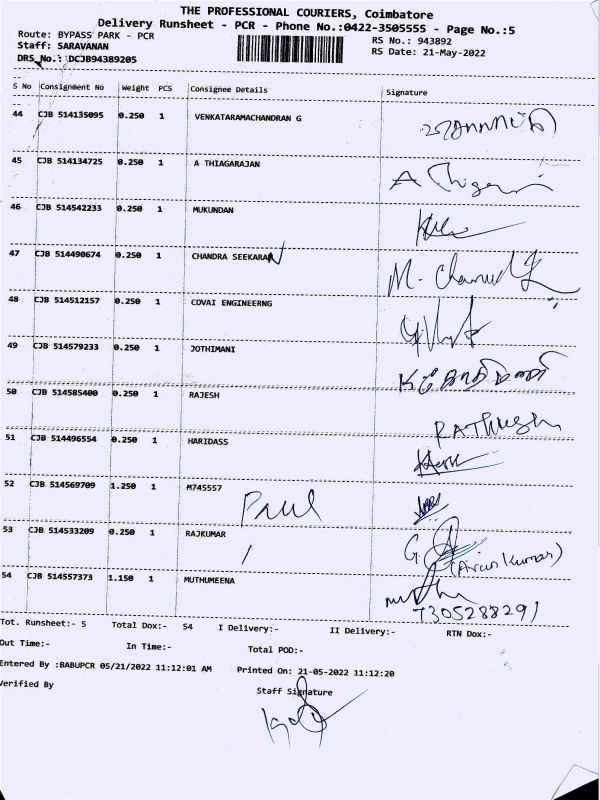 THE PROFESSIONAL COURIERS, Coimbatore
Delivery Runsheet - PCR - Phone No.:0422-3505555 - Page No.:5
Route: BYPASS PARK - PCR RS No.: 943892
Staff: SARAVANAN RS Date: 21-May-2022
DRS No.: DCJB94389205
S No Consignment No Weight PCS Consignee Details Signature
44 CJB 514135095 0.250 1 VENKATARAMACHANDRAN G
45 CJB 514134725 0.250 1 A THIAGARAJAN
46 CJB 514542233 0.250 1 MUKUNDAN
47 CJB 514490674 0.250 1 CHANDRA SEEKARAN
48 CJB 514512157 0.250 1 COVAI ENGINEERNG
49 CJB 514579233 0.250 1 JOTHIMANI
50 CJB 514585400 0.250 1 RAJESH
51 CJB 514496554 0.250 1 HARIDASS
52 CJB 514569709 1.250 1 M745557 Paul
53 CJB 514533209 0.250 1 RAJKUMAR G. (Arun Kumar)
54 CJB 514557373 1.150 1 MUTHUMEENA
7305288291
Tot. Runsheet:- 5 Total Dox:- 54 I Delivery:- II Delivery:- RTN Dox:-
Out Time:- In Time:- Total POD:-
Entered By :BABUPCR 05/21/2022 11:12:01 AM Printed On: 21-05-2022 11:12:20
Verified By Staff Signature